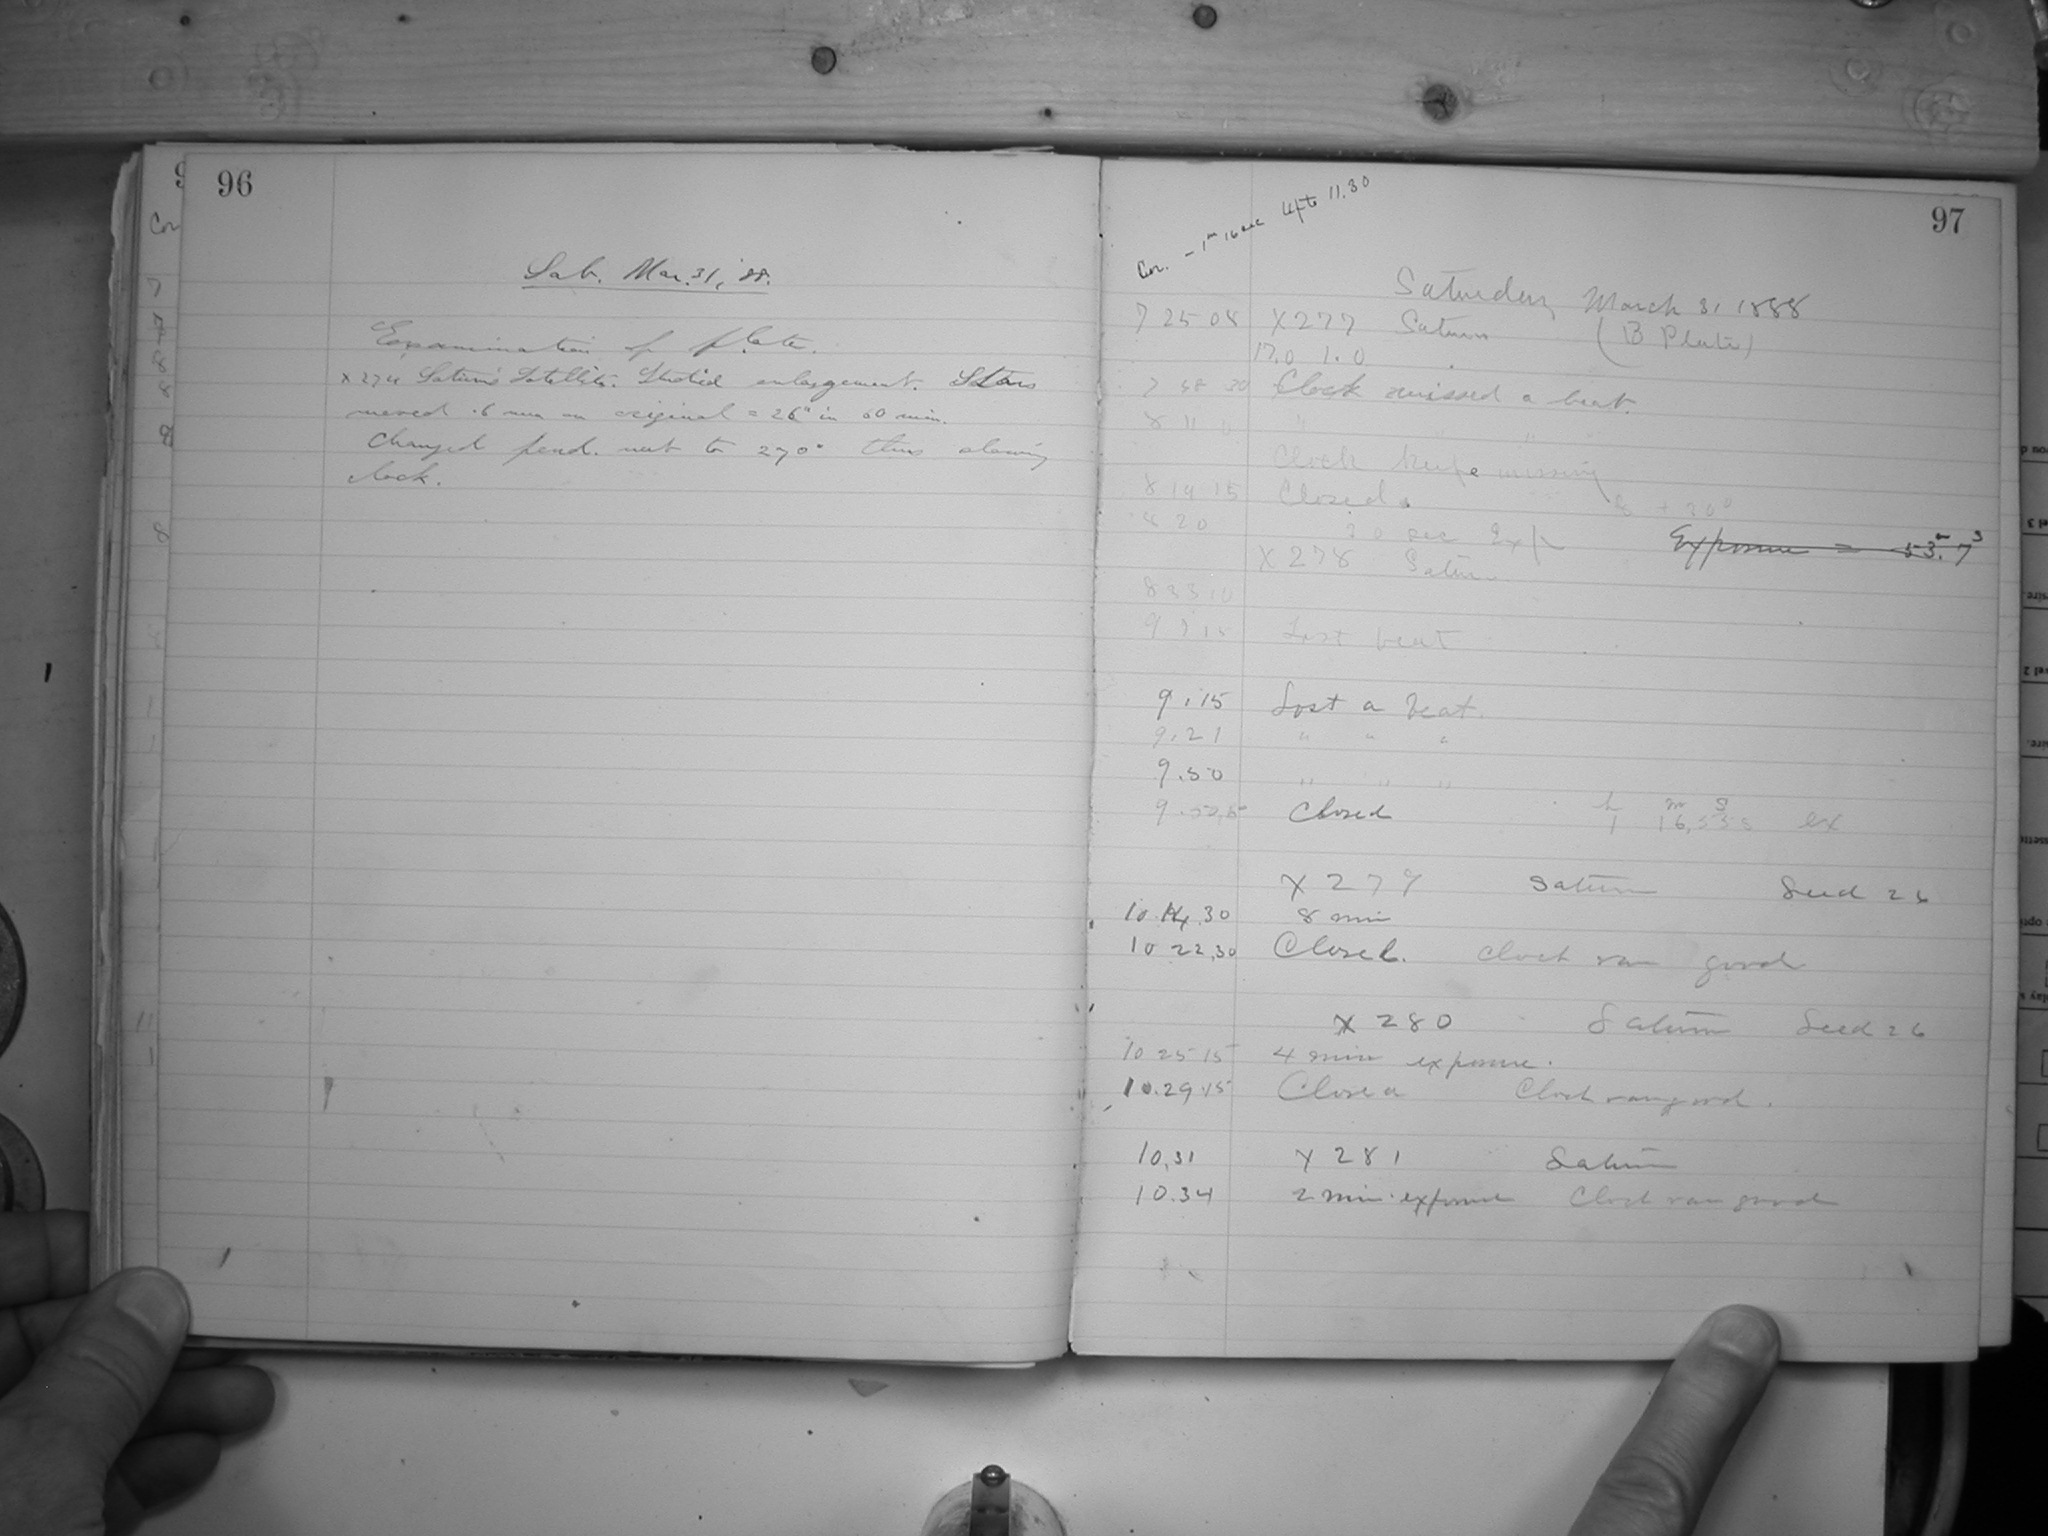 96
Sat. Mar. 31, '88.
Examination of plate.
X274 Saturn's Satellite. Studied enlargement. Stars
moved .6 mm on original = 26" in 60 min.
Changed pend. nut to 270° thus slowing
clock.
97
Cor. - 1m 16 sec up to 11.30
Saturday March 31 1888
7 25 08 X277 Saturn (B Plate)
17.0 1.0
7 58 30 Clock missed a beat.
8 11 " " "
Clock keeps missing
8 19 15 Closed. + 20°
8 20 20 sec Exp
Exposure = 53.m 7s
X 278 Saturn
8 33 10
9 7 15 Lost beat
9.15 Lost a beat.
9.21 " " "
9.50 " " "
9.52.5 Closed h m s
1 16,53 s ex
X 279 Saturn Seed 26
10.14.30 8 min
10 22.30 Closed. Clock ran good
X 280 Saturn Seed 26
10 25 15 4 min exposure.
10.29 15 Closed Clock ran good.
10.31 X 281 Saturn
10.34 2 min. exposure Clock ran good